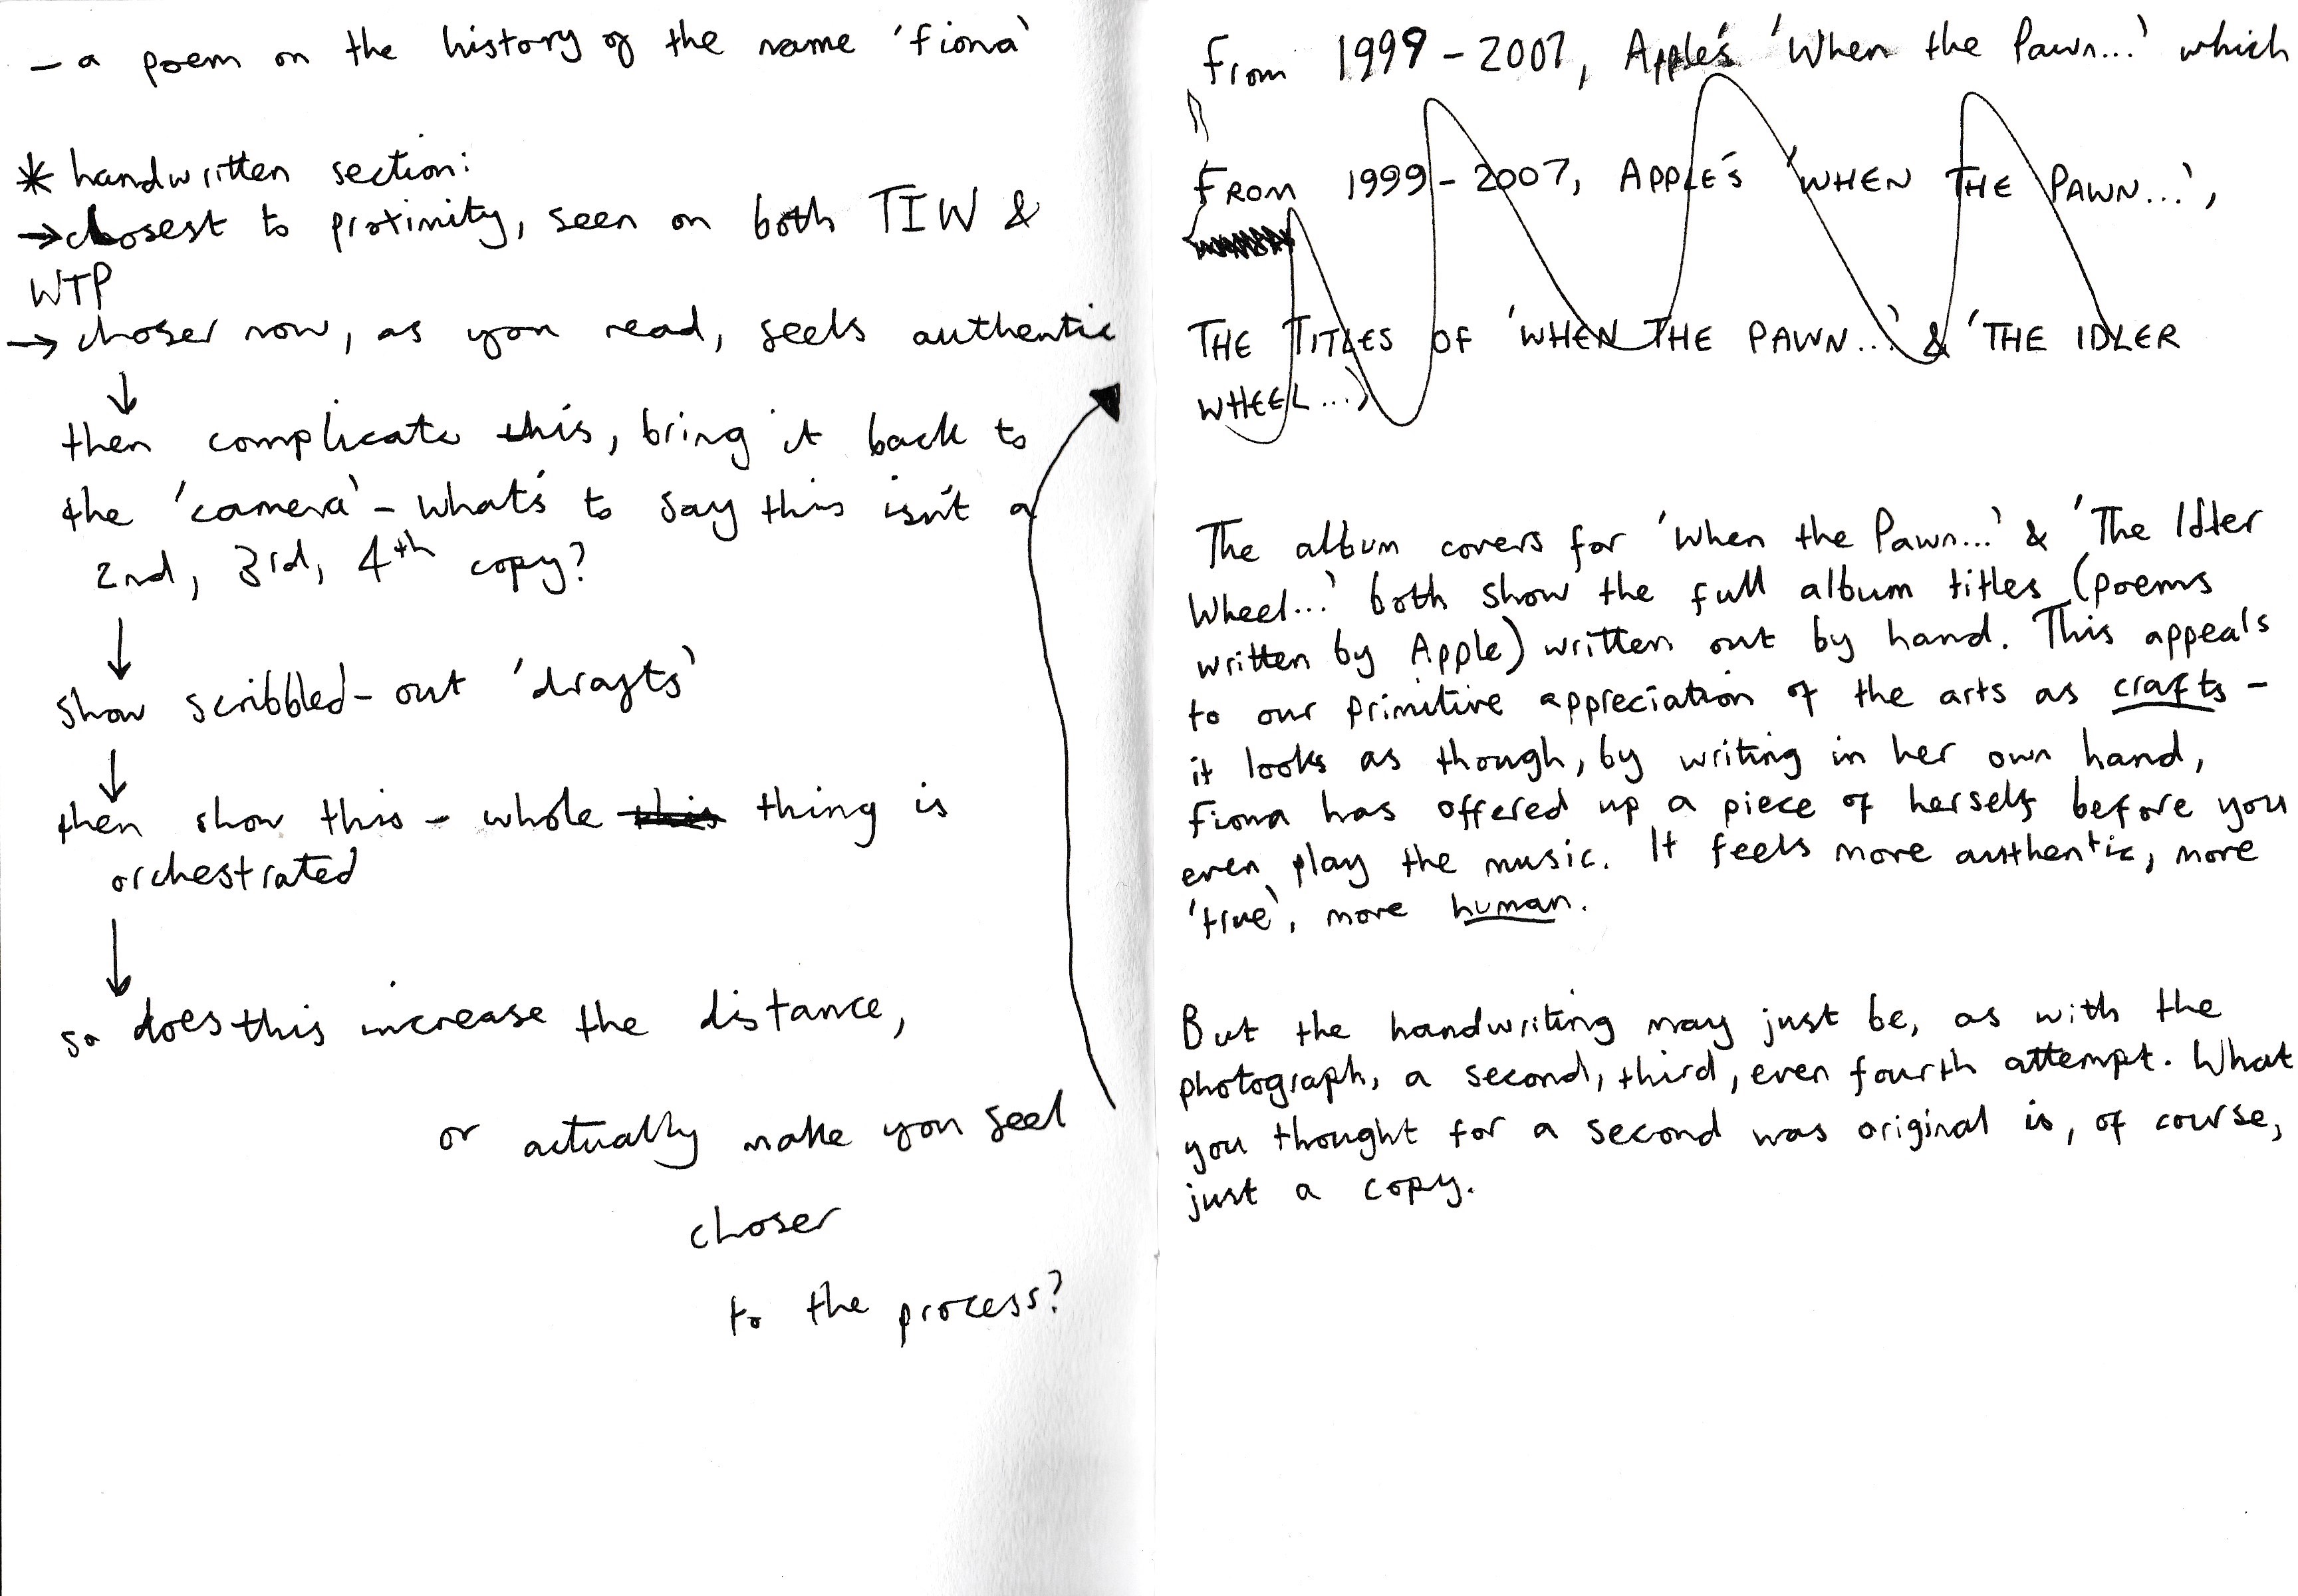 - a poem on the history of the name 'fiona'
* handwritten section:
→ closest to proximity, seen on both TIW &
WTP
→ closer now, as you read, feels authentic
↓
then complicate this, bring it back to
the 'camera' - what's to say this isn't a
2nd, 3rd, 4th copy?
↓
show scribbled-out 'drafts'
↓
then show this - whole this thing is
orchestrated
↓
so does this increase the distance,
or actually make you feel
closer
to the process?
From 1999-2007, Apple's 'When the Pawn...' which
FROM 1999-2007, APPLE'S 'WHEN THE PAWN...',
THE TITLES OF 'WHEN THE PAWN...' & 'THE IDLER
WHEEL...'
The album covers for 'When the Pawn...' & 'The Idler
Wheel...' both show the full album titles (poems
written by Apple) written out by hand. This appeals
to our primitive appreciation of the arts as crafts -
it looks as though, by writing in her own hand,
Fiona has offered up a piece of herself before you
even play the music. It feels more authentic, more
'true', more human.
But the handwriting may just be, as with the
photograph, a second, third, even fourth attempt. What
you thought for a second was original is, of course,
just a copy.